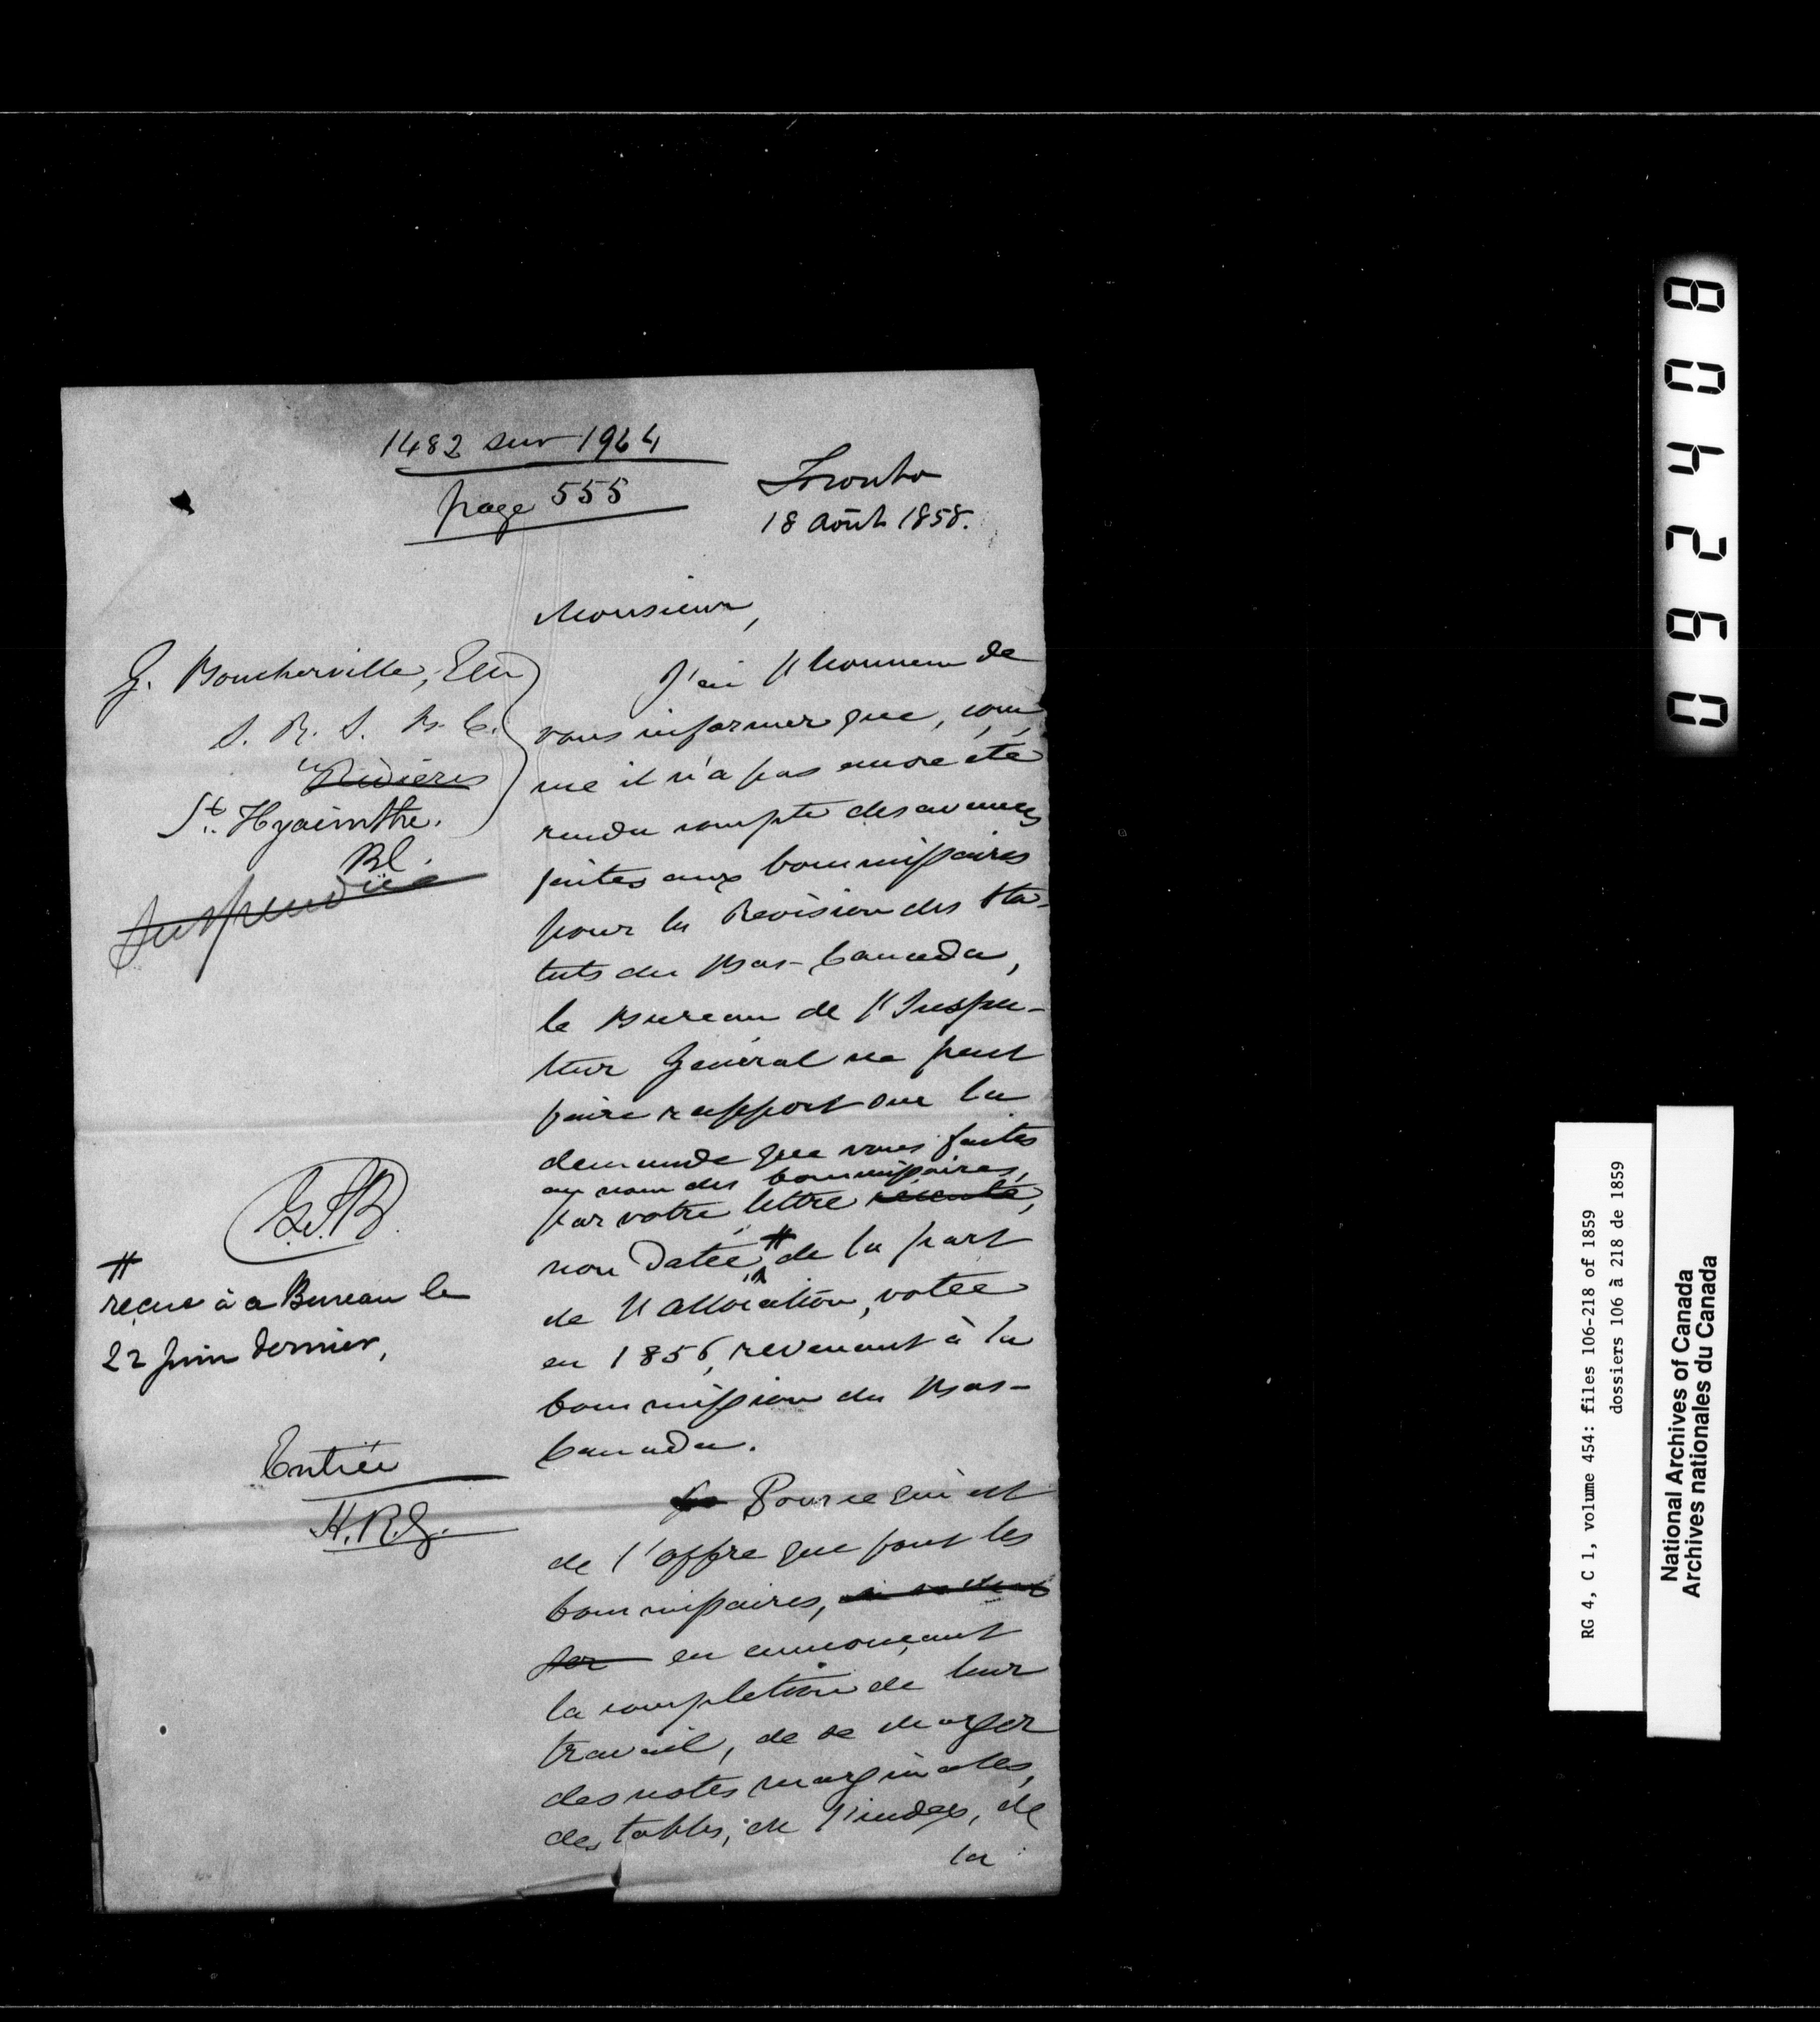 1482 sur 1964
page 555
Toronto
18 Août 1858.
Monsieur,
G. Boucherville, Ecr
S. R. S. B. C.
St. Hyacinthe.
Bl.
Suspendue
J'ai l'honneur de
vous informer que, com-
me il n'a pas encore été
rendu compte des avances
faites aux Commissaires
pour la Révision des Sta-
tuts du Bas-Canada,
le Bureau de l'Inspec-
teur Général ne peut
faire rapport sur la
demande que vous faites
au nom des Commissaires,
par votre lettre récente,
non datée, # de la part
de l'allocation, votée
en 1856, revenant à la
Commission du Bas-
Canada.
G.d.B.
#
reçue à ce Bureau le
22 juin dernier,
Entrée
H.R.G.
Pour ce qui est
de l'offre que font les
Commissaires,
en annonçant
la complétion de leur
travail, de se charger
des notes marginales,
des tables, de l'index, de
la
800 4 2 6 0
RG 4, C 1, volume 454: files 106-218 of 1859
dossiers 106 à 218 de 1859
National Archives of Canada
Archives nationales du Canada